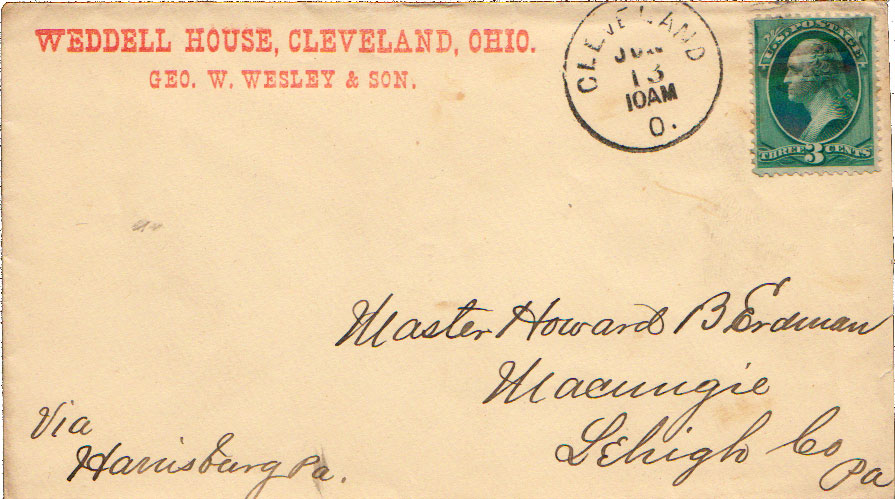 WEDDELL HOUSE, CLEVELAND, OHIO.
GEO. W. WESLEY & SON.
CLEVELAND
JUN
13
10AM
O.
U.S. POSTAGE
THREE 3 CENTS
Master Howard B Erdman
Macungie
Lehigh Co
Pa
Via
Harrisburg Pa.